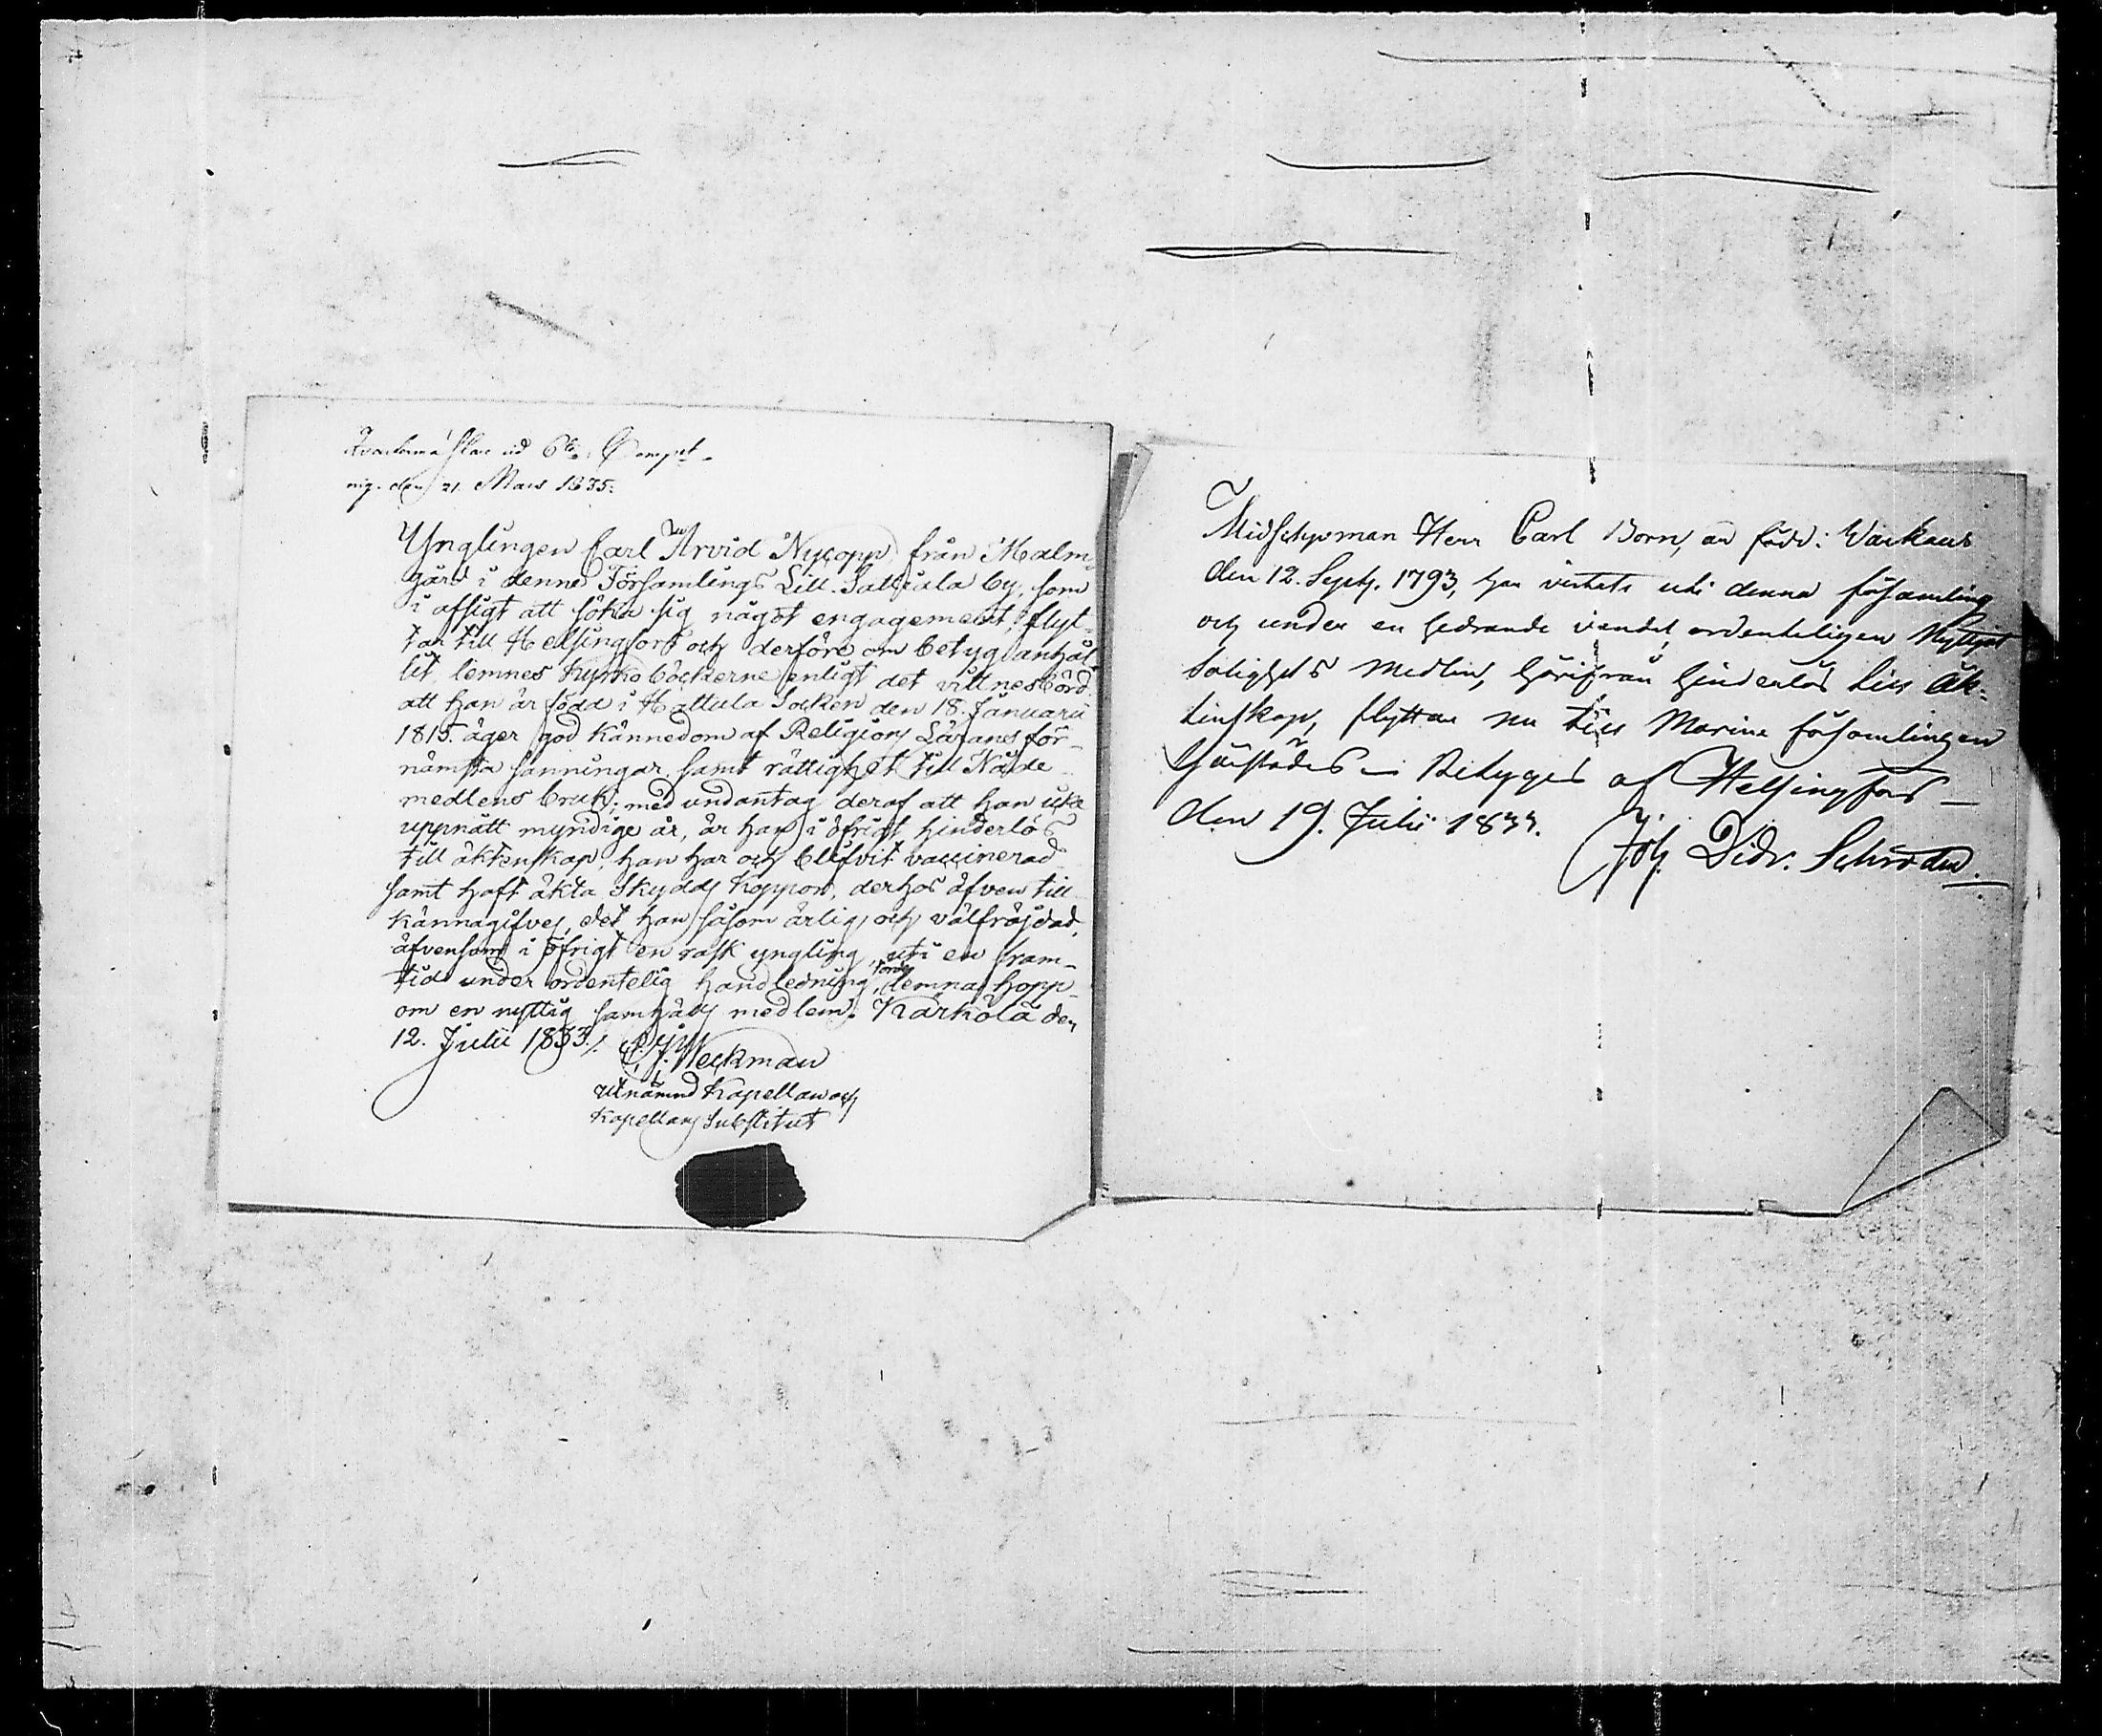 vid 6te Comp
nig. den 21. Mars 1835.
Ynglingen Carl Arvid Nycopp från Malm-
gård i denne Församlings Lill. Sattiala by, som
i afsigt att söka sig något engagement, flyt-
tar till Helsingfors och derföre om betyg anhål-
lit, lemnes Kyrko böckerne enligt det vittnesbörd
att han är född i Hattula Socken den 18. Januarii
1815. äger god kännedom af Religions Lärans för-
nämsta sanningar samt rättighet till Nåde
medlens bruk; med undantag deraf att han icke
uppnått myndige år, är han i öfrigt hinderlös
till äktenskap, han har och blifvit vaccinerad
samt haft äkta Skydds Koppor, derhos äfven till
kännagifves, det han såsom ärlig och välfräjdad,
äfvensom i öfrigt en rask yngling, uti en fram-
tid under ordentelig handledning, torde lemna hopp
om en nyttig samhälls medlem. Kärkölä den
12. Julii 1833.
C. J. Weckman
utnämnd Kapellan och
Kapellans Substitut
Midschipman Herr Carl Born, är född i Warkaus
den 12. Sept. 1793, har vistats uti denna församling
och under en hedrande vandel, ordenteligen Nyttjat
Salighets Medlen, härifrån hinderlös till Äk-
tenskap, flyttar nu till Marine församlingen
härstädes – Betyges af Helsingfors –
den 19. Julii 1833.
Joh. Didr. Schröder.